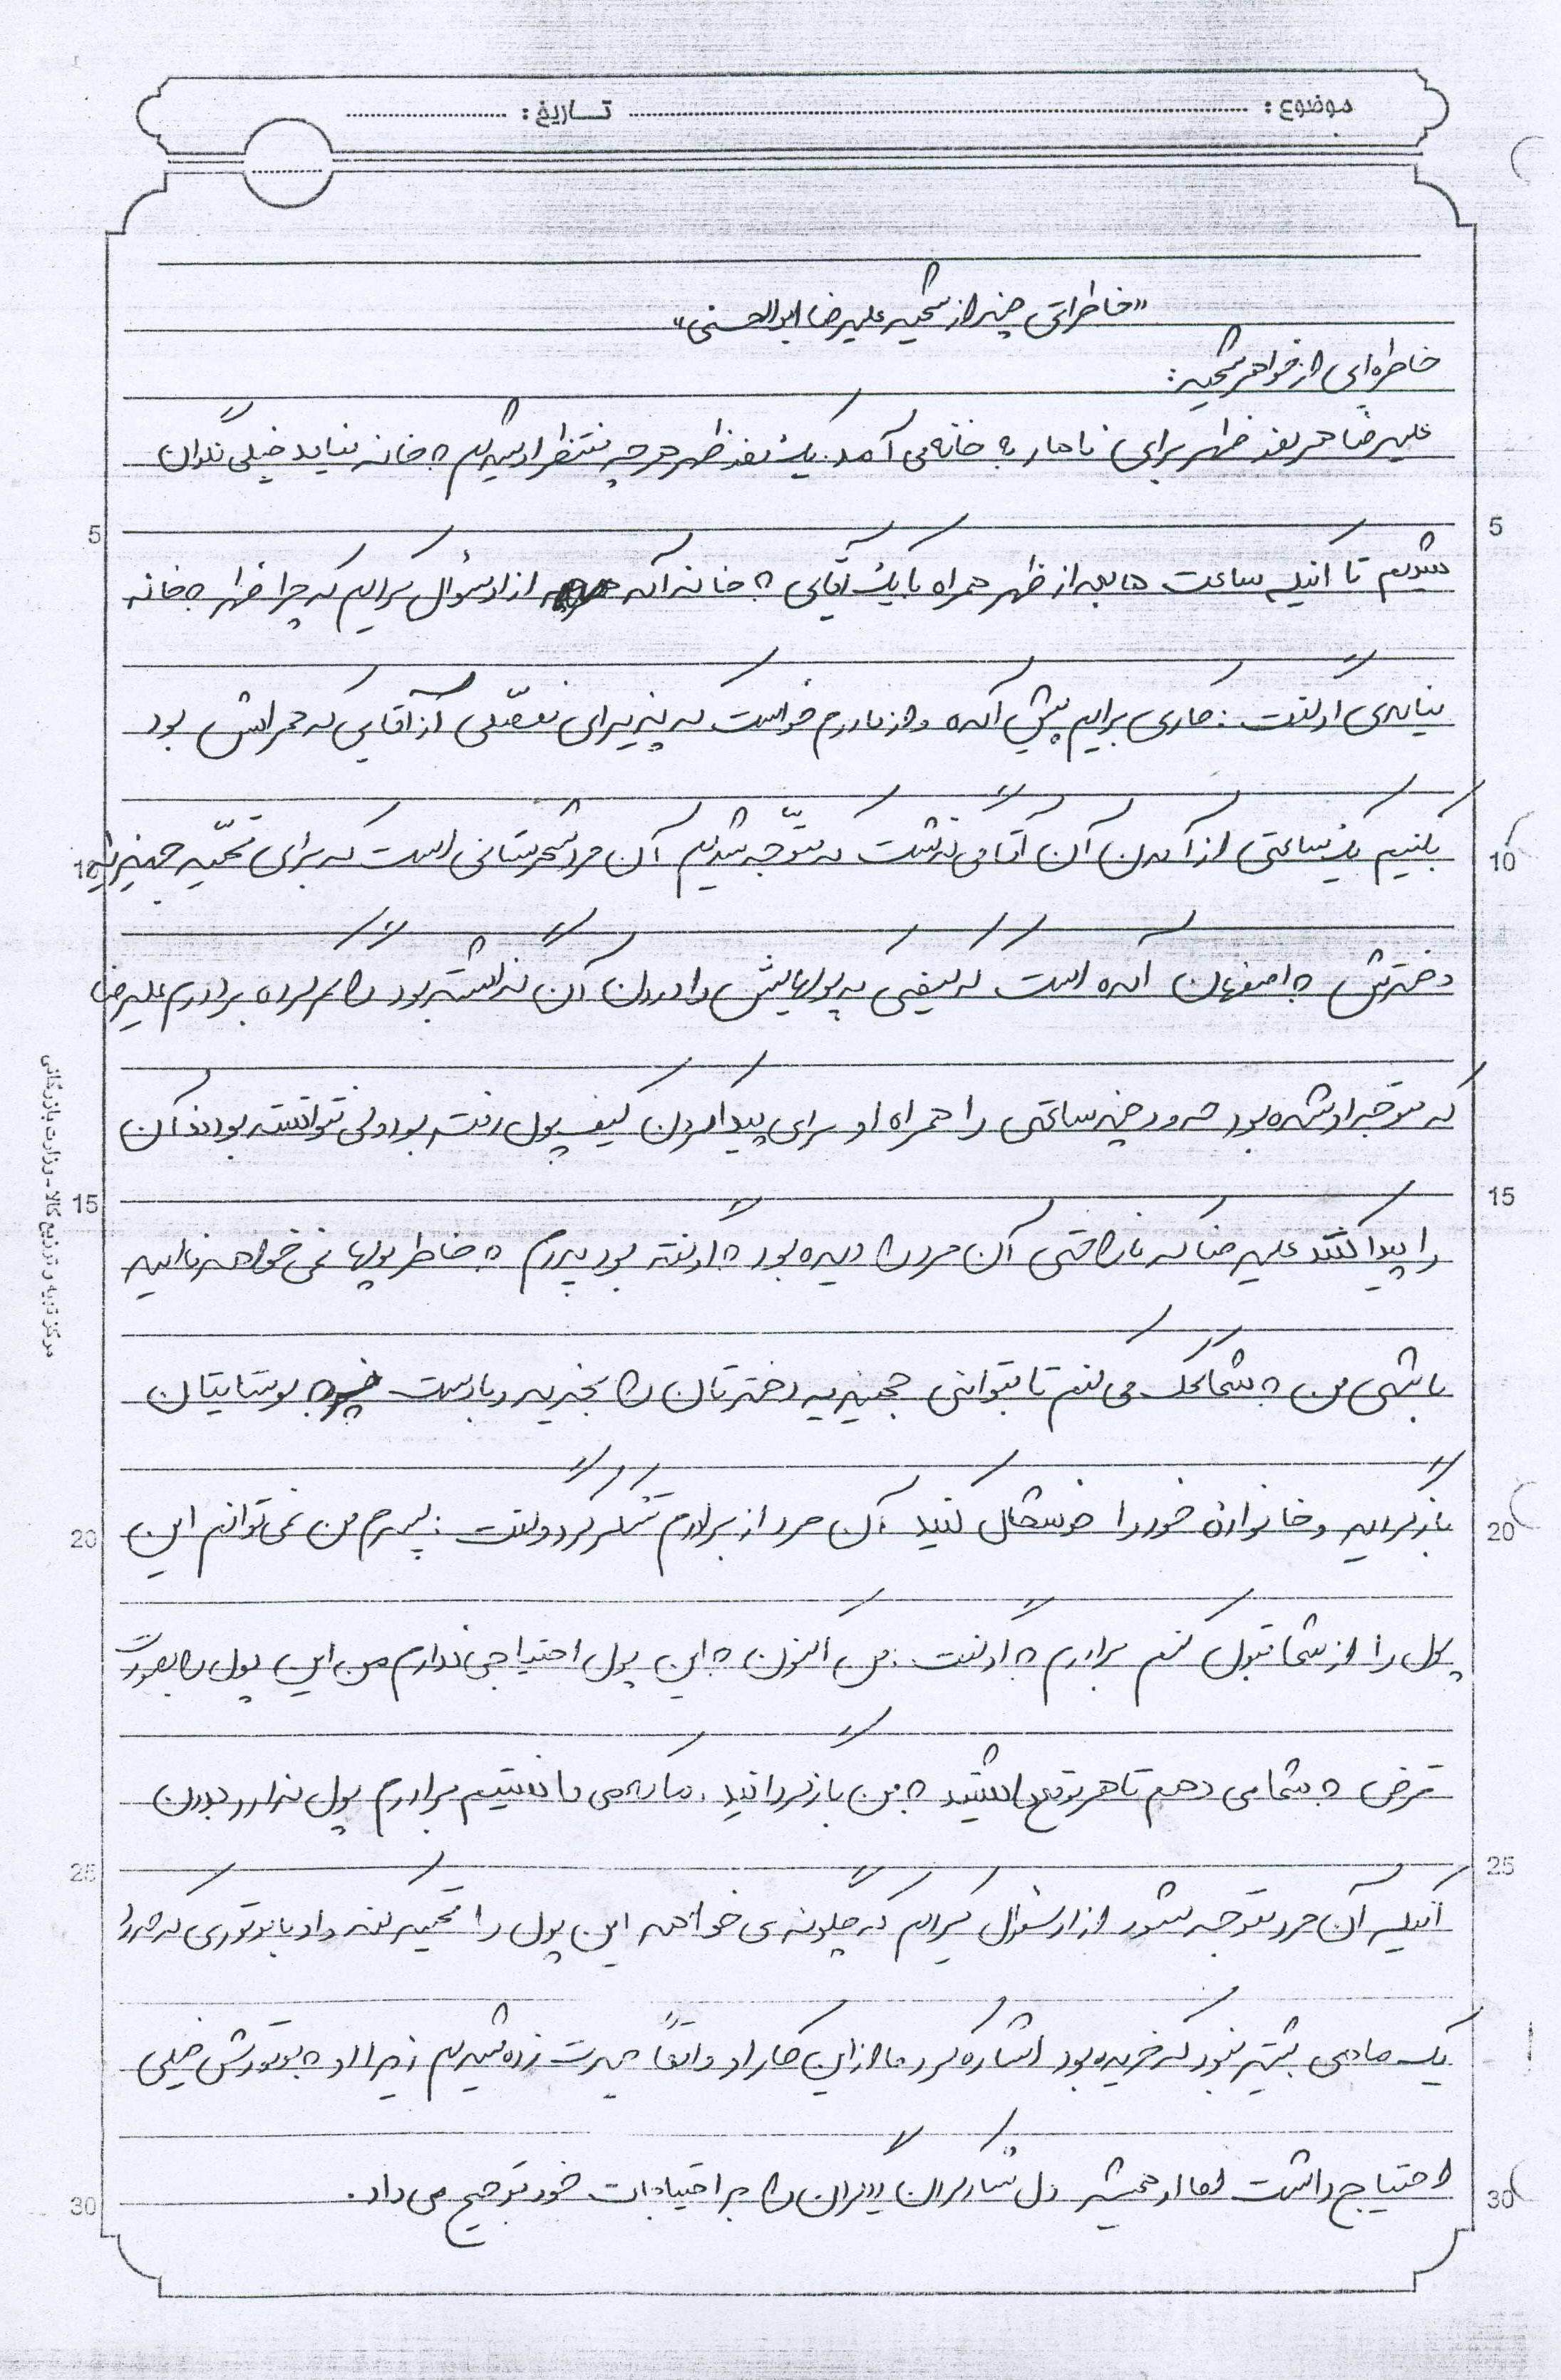 موضوع : تاریخ :
«خاطراتی چند از شهید علیرضا ابوالحسنی»
خاطره‌ای از خواهر شهید:
علیرضا هر روز ظهر برای ناهار به خانه می‌آمد. یک روز ظهر هر چه منتظر او شدیم به خانه نیامد خیلی نگران
5 5
شدیم تا اینکه ساعت ۵ بعد از ظهر همراه با یک آقایی به خانه آمد از او سؤال کردیم که چرا ظهر به خانه
نیامدی او گفت: کاری برایم پیش آمده و از مادرم خواست که پذیرای مفصّلی از آقایی که همراهش بود
بکنیم یک ساعتی از آمدن آن آقا می‌گذشت که متوجّه شدیم آن مرد شهرستانی است که برای تهیّه جهیزیه
10 10
دخترش به اصفهان آمده است که کیفی که پولهایش را درون آن گذاشته بود را گم کرده برادرم علیرضا
که متوجه او شده بود حدود چند ساعتی را همراه او برای پیدا کردن کیف پول رفته بود ولی نتوانسته بودند آن
15 15
را پیدا کنند علیرضا که ناراحتی آن مرد را دیده بود به او گفته بود پدرم به خاطر پولها نمی‌خواهد ناامید
باشی من به شما کمک می‌کنم تا بتوانی جهیزیه دخترتان را بخرید و با دست پر به روستایتان
بازگردید و خانواده خود را خوشحال کنید آن مرد از برادرم تشکر کرد و گفت: پسرم من نمی‌توانم این
20 20
پول را از شما قبول کنم برادرم به او گفت: من اکنون به این پول احتیاجی ندارم من این پول را بصورت
قرض به شما می دهم تا هر موقع داشتید به من بازگردانید. ما که می دانستیم برادرم پول ندارد بدون
25 25
اینکه آن مرد متوجه شود از او سؤال کردیم که چگونه می خواهد این پول را تهیه کند و او با موتوری که حدوداً
یک ماهی بیشتر نبود که خریده بود اشاره کرد ما از این کار او واقعاً حیرت زده شدیم زیرا او به موتورش خیلی
احتیاج داشت اما او همیشه دل شاد کردن دیگران را بر احتیاجات خود ترجیح می داد.
30 30
مرکز تهیه و توزیع کالا - وزارت بازرگانی